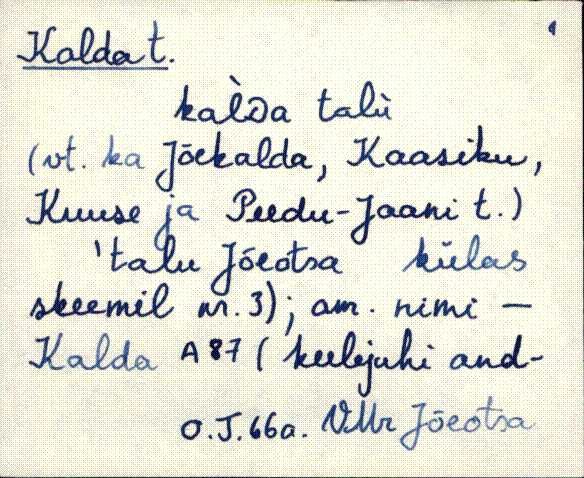 Kalda t.
kal̀da talù
(vt. ka Jõekalda, Kaasiku,
Kuuse ja Peedu-Jaani t.)
'talu Jõeotsa külas
skeemil nr. 3); am. nimi —
Kalda A 87 (keelejuhi and-
O.J. 66a. VMr Jõeotsa